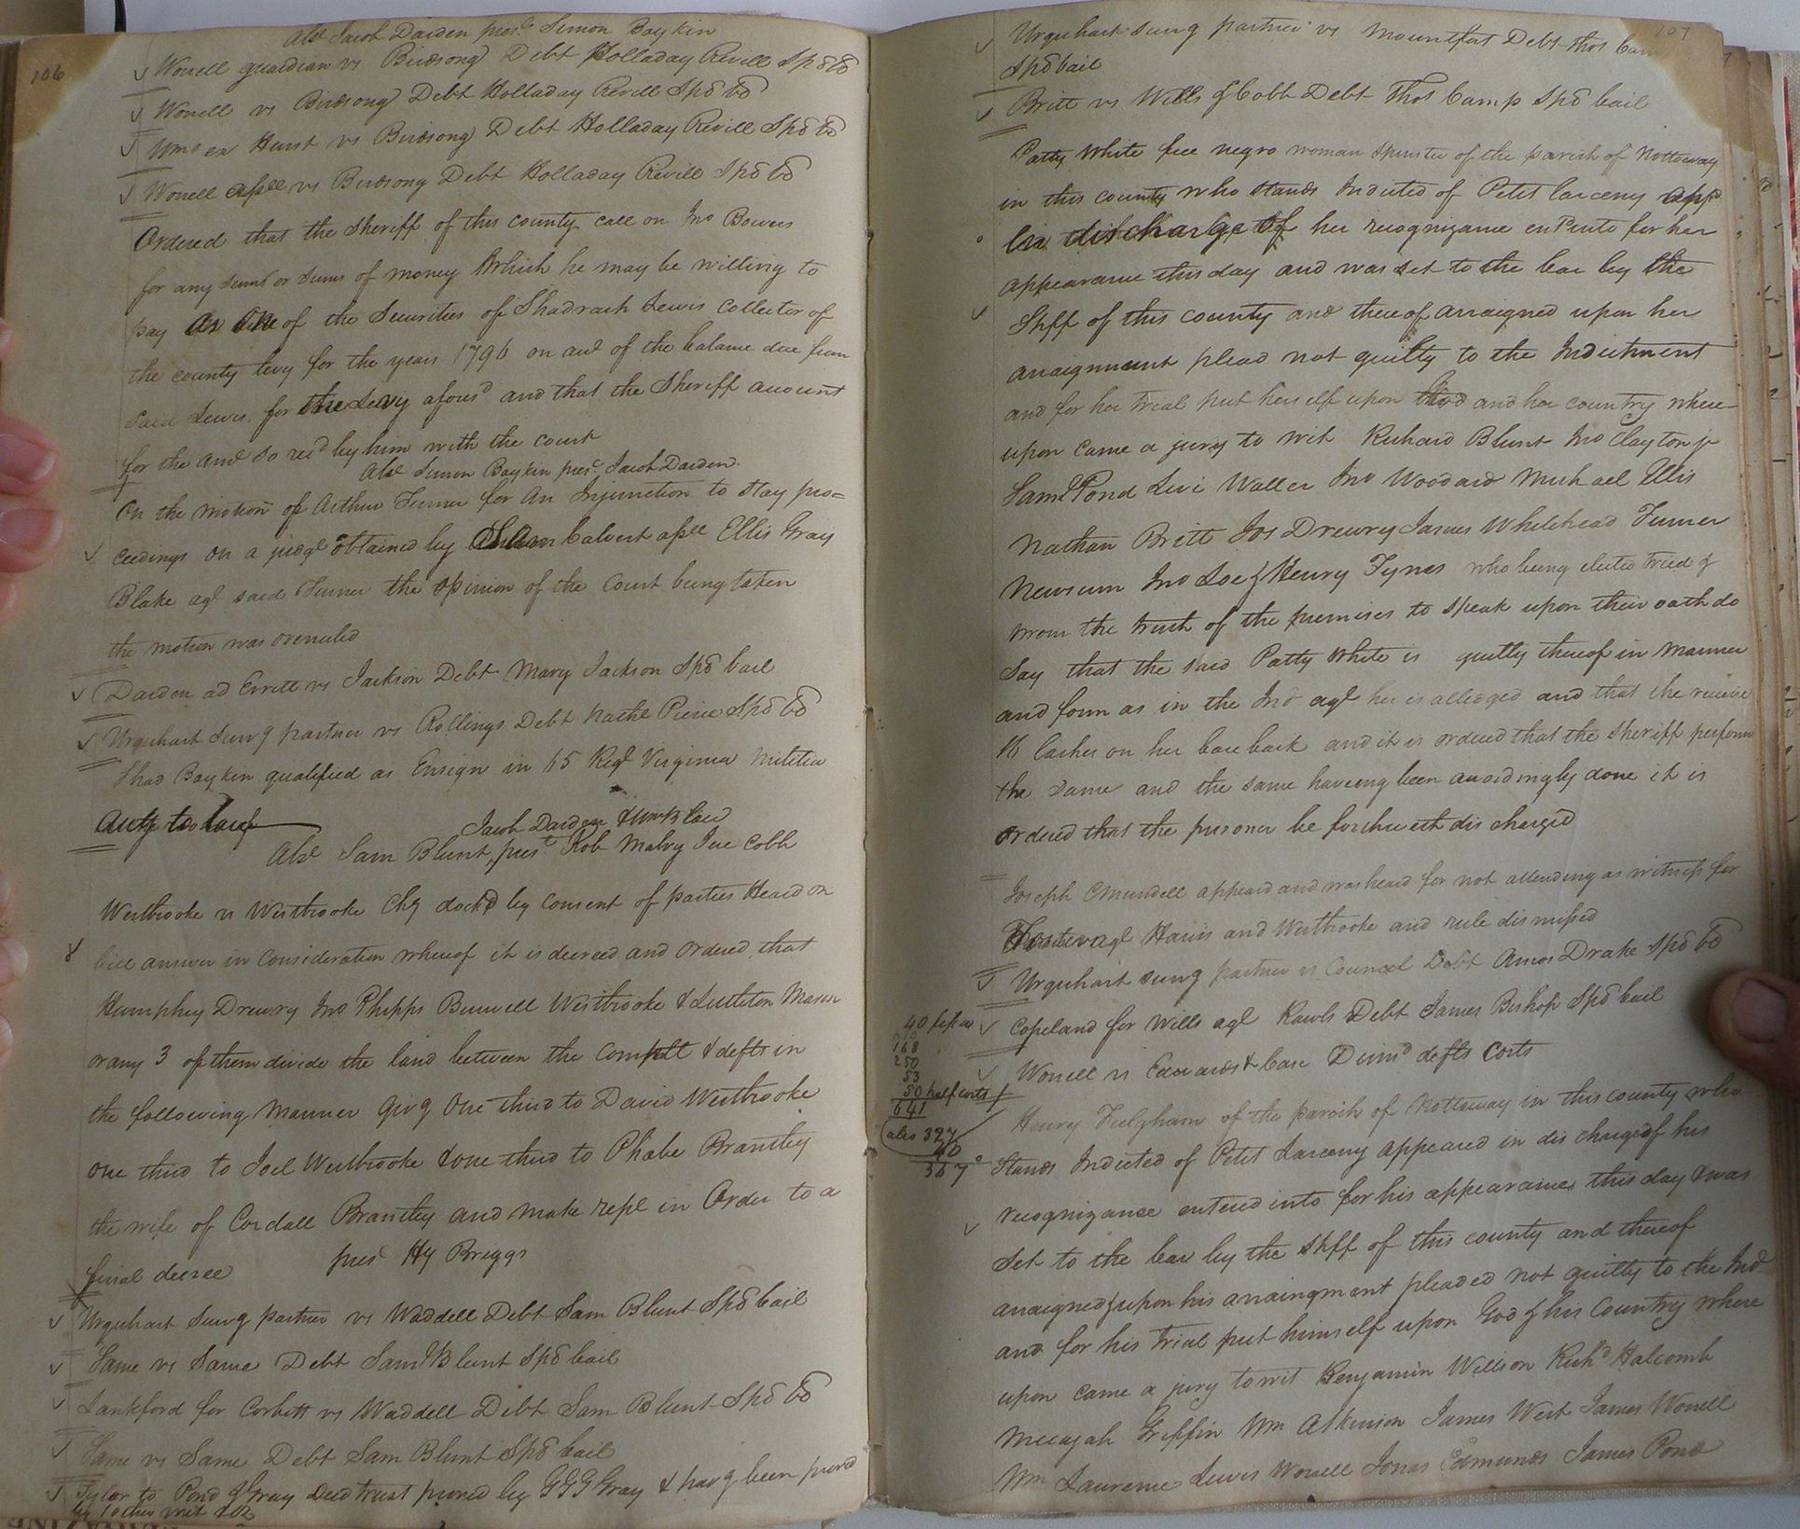 106
Abs Jacob Darden pres.t Simon Boykin
Worrell guardian vs Birdsong Debt Holladay Revill Spd bd
Worrell vs Birdsong Debt Holladay Revill Spd bd
Wms ex Hurst vs Birdsong Debt Holladay Revill Spd bd
Worrell assee vs Birdsong Debt Holladay Revill Spd bd
Ordered that the Sheriff of this county call on Jno Bowers
for any sum or sums of money which he may be willing to
pay as one of the Securities of Shadrach Lewis Collector of
the county levy for the years 1796 on act of the balance due from
said Lewis for the Levy afores.d and that the Sheriff account
for the amt so recd by him with the court
Abs.t Simon Boykin pres.t Jacob Darden
On the motion of Arthur Turner for An Injunction to stay pro=
ceedings on a judgt obtained by Calvert assee Ellis Gray
Blake agt said Turner the Opinion of the Court being taken
the motion was overruled
Darden ad Evritt vs Jackson Debt Mary Jackson Spd bail
Urquhart survg partner vs Rollings Debt Nathl Peirce Spd bd
Thad Boykin qualified as Ensign in 65 Regt Virginia militia
accg to law
Jacob Darden &
Abs.t Sam Blunt, pres.t Rob Mabry Jne Cobb
Westbrooke vs Westbrooke Chy dockd by consent of parties Heard on
bill answer in Consideration whereof it is decreed and Ordered that
Humphey Drewry Jno Phipps Burwell Westbrooke & Littleton Mason
or any 3 of them divide the land between the complt & defts in
the following Manner givg One third to David Westbrooke
one third to Joel Westbrooke & one third to Phebe Brantley
the wife of Cordall Brantley and make rept in Order to a
final decree pres.t Hy Briggs
Urquhart Survg partner vs Waddell Debt Sam Blunt Spd bail
Same vs Same Debt Saml Blunt Spd bail
Lankford for Corbitt vs Waddell Debt Sam Blunt Spd bd
Same vs Same Debt Sam Blunt Spd bail
Tylor to Pond & Gray Deed trust proved by GGG Gray & havg been proved
by 1 other wit
107
Urquhart survg partner vs Mountfort Debt Thos Cam
Spd bail
Britt vs Wells & Cobb Debt Thos Camp Spd bail
Patty White free negro woman Spinster of the parish of Nottoway
in this county who stands Indicted of Petit Larceny appd
in discharge of her recognizance entd into for her
appearance this day and was set to the bar by the
Shff of this county and thereof arraigned upon her
arraignment plead not guilty to the Indictment
and for her trial put herself upon God and her country where-
upon came a jury to wit Richard Blunt Jno Clayton jr
Saml Pond Levi Waller Jno Woodard Michael Ellis
Nathan Britt Jos Drewry James Whitehead Turner
Newsum Jno & Henry Tynes who being elected tried &
sworn the truth of the premises to speak upon their oath do
Say that the said Patty White is guilty thereof in Manner
and form as in the Ind agt her is alledged and that she receive
16 lashes on her bare back and it is ordered that the Sheriff perform
the same and the same haveing been accordingly done it is
ordered that the prisoner be forthwith discharged
Joseph Crumdell appeard and was heard for not attending as witness for
agt Harris and Westbrooke and rule dismissed
Urquhart survg partner vs Council Debt Amos Drake Spd bd
Copeland for Wells agt Rawls Debt James Bishop Spd bail
Worrell vs Edwards & Case Dismd defts Costs
40
168
250
53
50 half costs
641
also 327
40
367
Henry Fulgham of the parish of Nottoway in this county who
Stands Indicted of Petit Larceny appeared in discharge of his
recognizance entered into for his appearance this day & was
set to the bar by the Shff of this county and thereof
arraigned & upon his arraingment pleaded not guilty to the Ind
and for his trial put himself upon God & his Country where
upon came a jury to wit Benjamin Willson Richd Halcomb
Mecajah Griffin Wm Atkinson James West James Worrell
Wm Laurence Lewis Worrell Jonas Edmunds James Pond